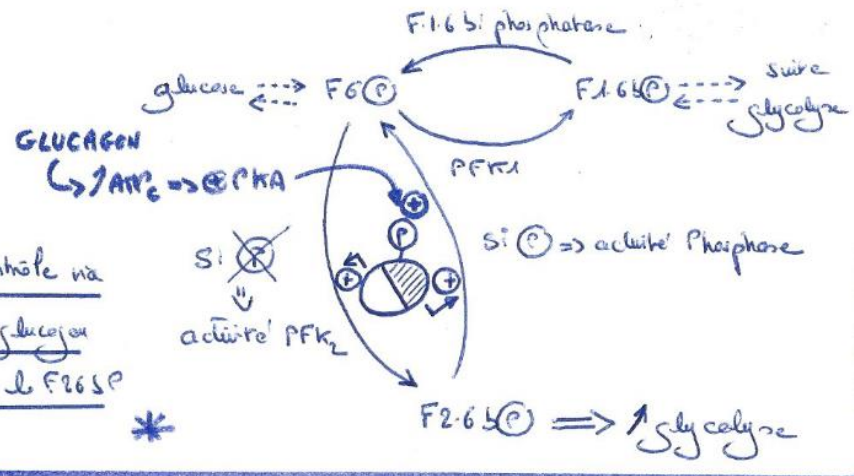 F.1.6 bi phosphatase
glucose F6(P) F1.6b(P) suite
glycolyse
GLUCAGON
PFK1
=> ⊕ PKA
⊕
P
Si P Si (P) => activité Phosphase
⊕ ⊕
activité PFK2
via
glucagon
F26bP
*
F2.6b(P) => ↑ glycolyse